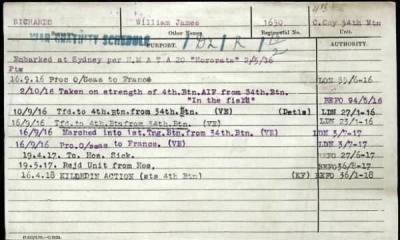 RICHARDS William James 1650 C.Coy 34th Btn
Surname Other Names Regimental No.
WAR GRATUITY SCHEDULE PURPORT. AUTHORITY
Embarked at Sydney per H.M A T A 20 "Hororata" 2/5/16
Pte
16.9.16 Proc O/Seas to France LDN 35/6-16
2/10/16 Taken on strength of 4th.Btn.AIF from 34th.Btn. REPO 94/5/16
"In the field"
10/9/16 Tfd.to 4th.Btn.from 34th.Btn. (VE) (Detls) LDN 27/1-16
16/9/16 Tfd.to 4th.Btnfrom 34th.Btn. (VE) LDN 23/1-16
16/9/16 Marched into 1st.Tng.Btn.from 34th.Btn. (VE) LDN 3/7-17
16/9/16 Pro.O/seas to France. (VE) LDN 3/7-17
19.4.17. To. Hos. Sick. REPO 27/6-17
19.5.17. Rejd Unit from Hos. REPO 36/8-17
16.4.18 KILLEDIN ACTION (sts 4th Btn) (KF) REPO 36/1-18